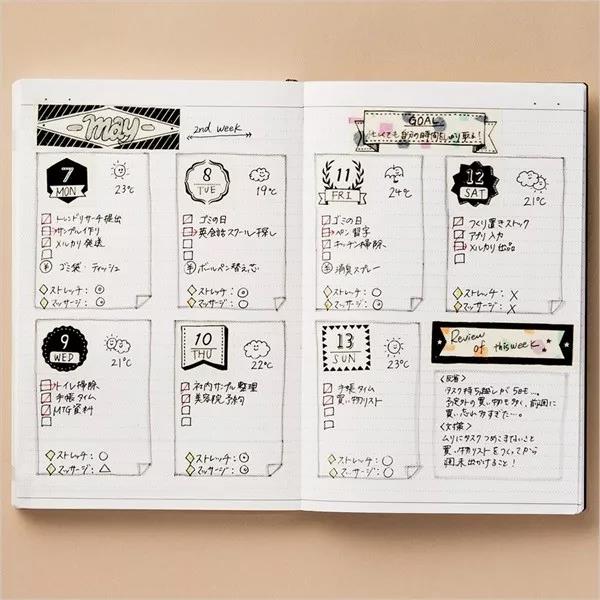 may
2nd week
GOAL
忙しくても自分の時間をしっかり取る!
7
MON
23℃
トレンドリサーチ提出
サンプル作り
メルカリ発送
¥ ゴミ袋・ティッシュ
ストレッチ:◎
マッサージ:◎
8
TUE
19℃
ゴミの日
英会話スクール探し
¥ ボールペン替え芯
ストレッチ:◎
マッサージ:○
11
FRI
24℃
ゴミの日
ペン習字
キッチン掃除
¥ 消臭スプレー
ストレッチ:○
マッサージ:◎
12
SAT
21℃
つくり置きストック
アプリ入力
メルカリ出品
ストレッチ:X
マッサージ:X
9
WED
21℃
トイレ掃除
手帳タイム
MTG資料
ストレッチ:○
マッサージ:△
10
THU
22℃
社内サンプル整理
美容院予約
ストレッチ:◎
マッサージ:◎
13
SUN
23℃
手帳タイム
買い物リスト
ストレッチ:○
マッサージ:○
Review
of this week
<反省>
タスク持ち越しが5日も…。
予定外の買い物も多く、前回に
買い忘れすぎた…。
<対策>
ムリにタスクつめこまないこと
買い物リストをつくってから
週末出かけること!